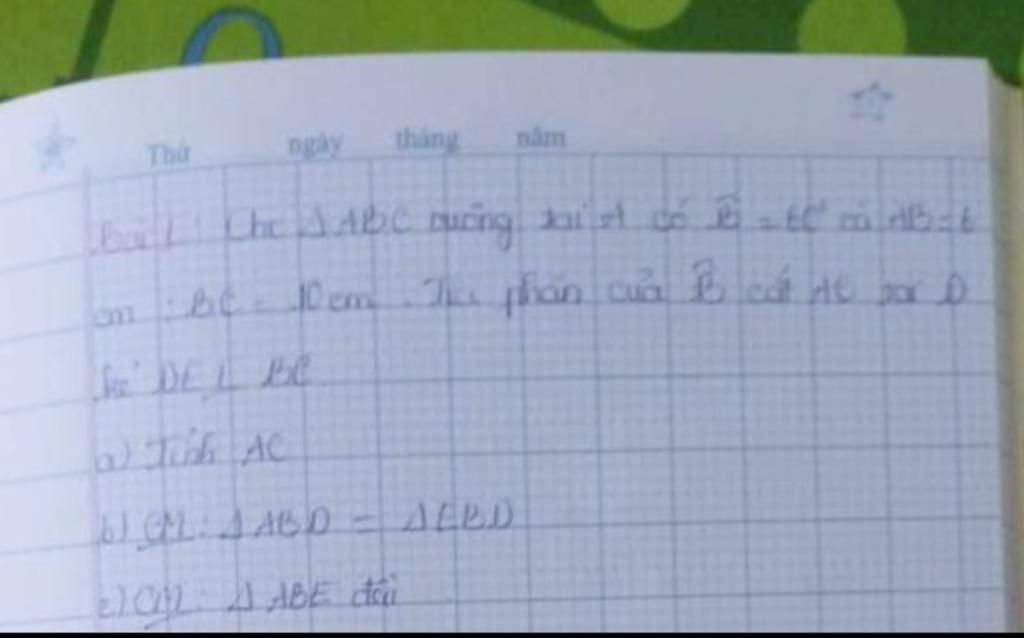 Thứ ngày tháng năm
Bài 1: Cho Δ ABC vuông tại A có B̂ = 60° và AB = 6
cm ; BC = 10 cm . Tia phân của B̂ cắt AC tại D
Kẻ DE ⊥ BC
a) Tính AC
b) CM: Δ ABD = Δ EBD
c) CM: Δ ABE đều